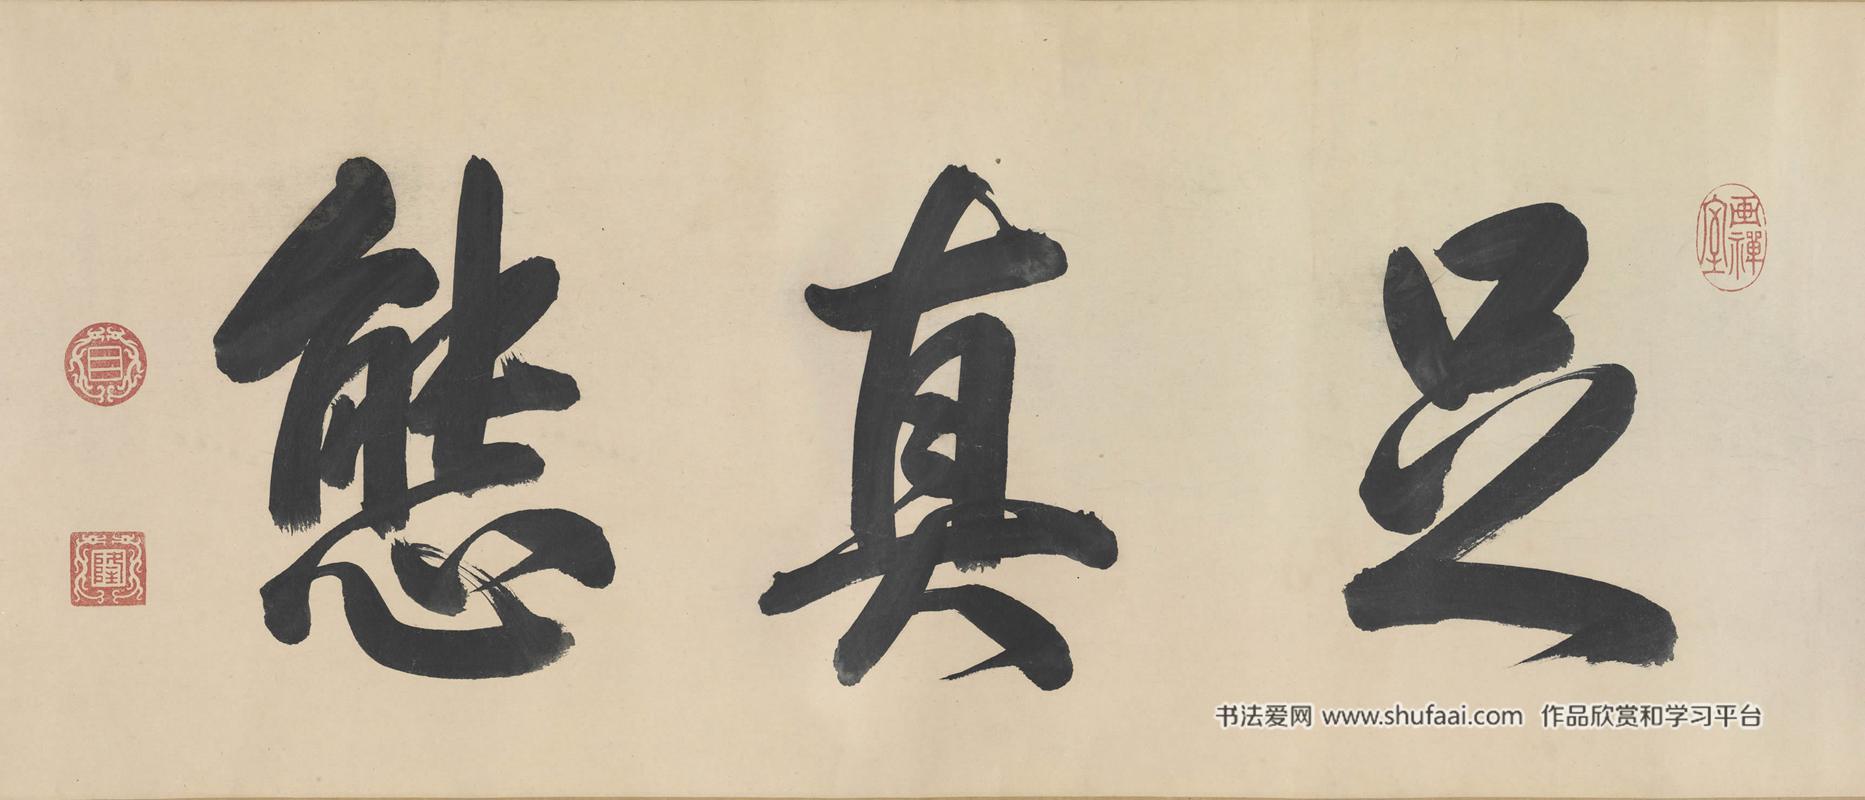 画禪室
足真態
☰
隆
书法爱网 www.shufaai.com 作品欣赏和学习平台